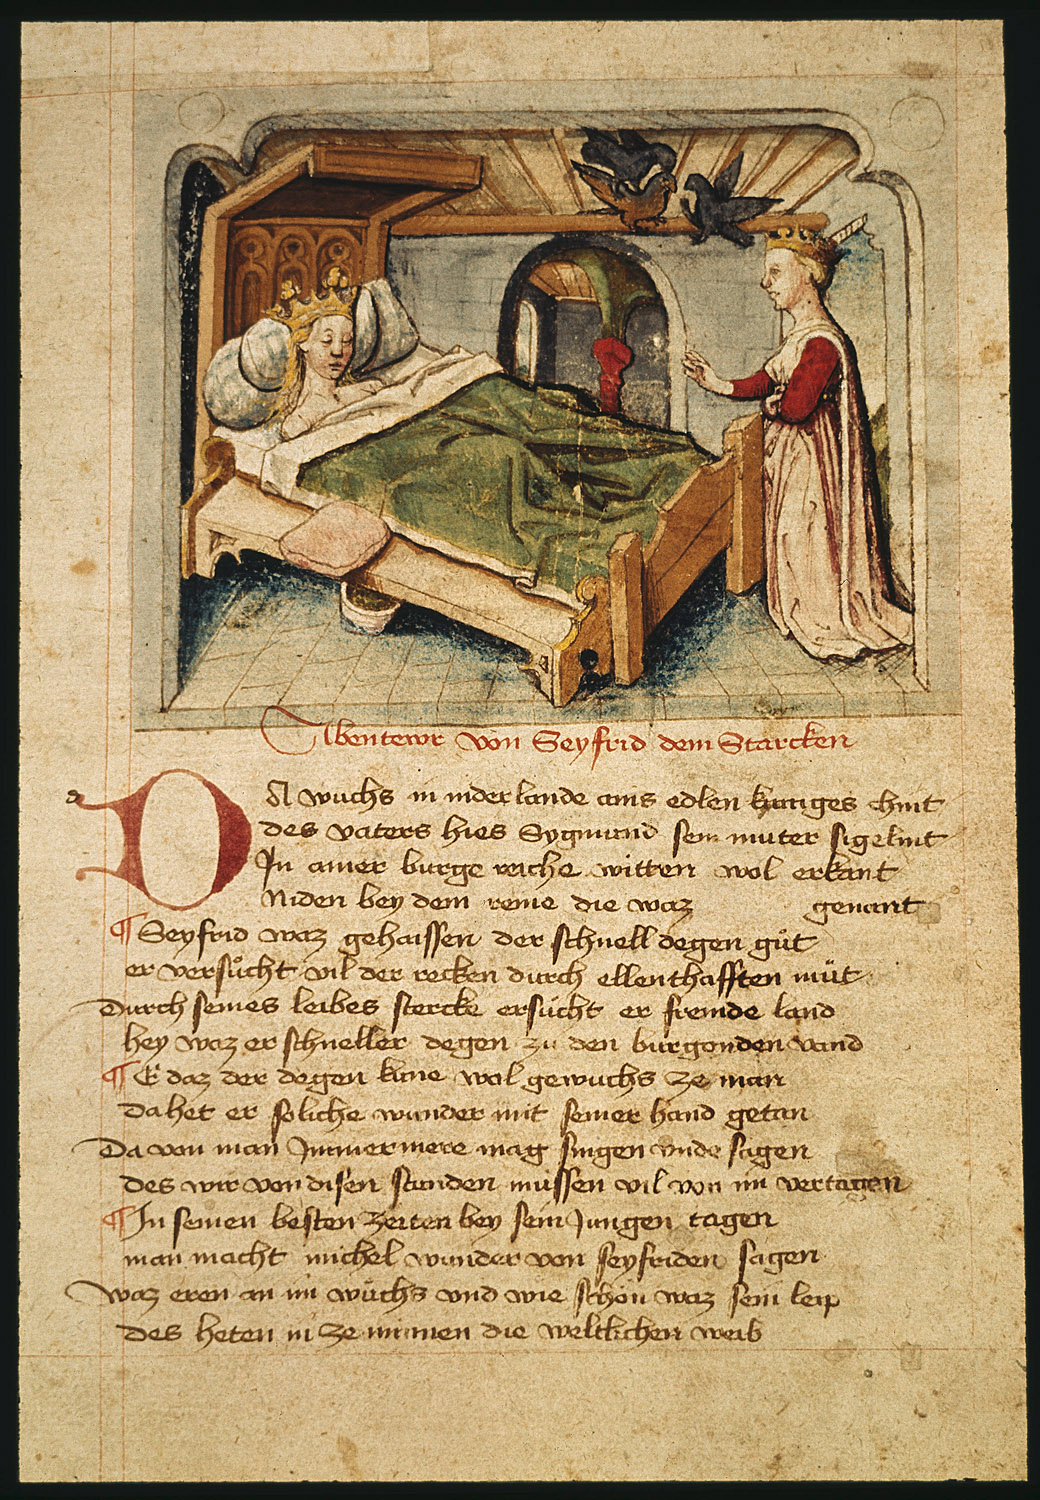 Abentewr von Seyfrid dem Starcken
DA wuchs in niderlande ains edlen kuniges chint
des vaters hies Sygmund sein muter sigelint
In ainer burge reiche witten wol erkant
Niden bey dem reine die waz genant
¶ Seyfrid waz gehaissen der schnell degen gůt
er versůcht vil der recken durch ellenthafften můt
Durch seines leibes stercke ersůcht er fremde land
hey waz er schneller degen zu den burgonden vand
¶ E daz der degen kune wol gewuchs ze man
da het er soliche wunder mit seiner hand getan
Da von man Immermere mag singen unde sagen
des wir von disen stunden mussen vil von im vertagen
¶ In seinen besten zeiten bey sein Jungen tagen
man macht michel wunder von seyfriden sagen
Waz eren an im wůchs vnd wie schön waz sein leip
des heten in ze minnen die weltlichen weib